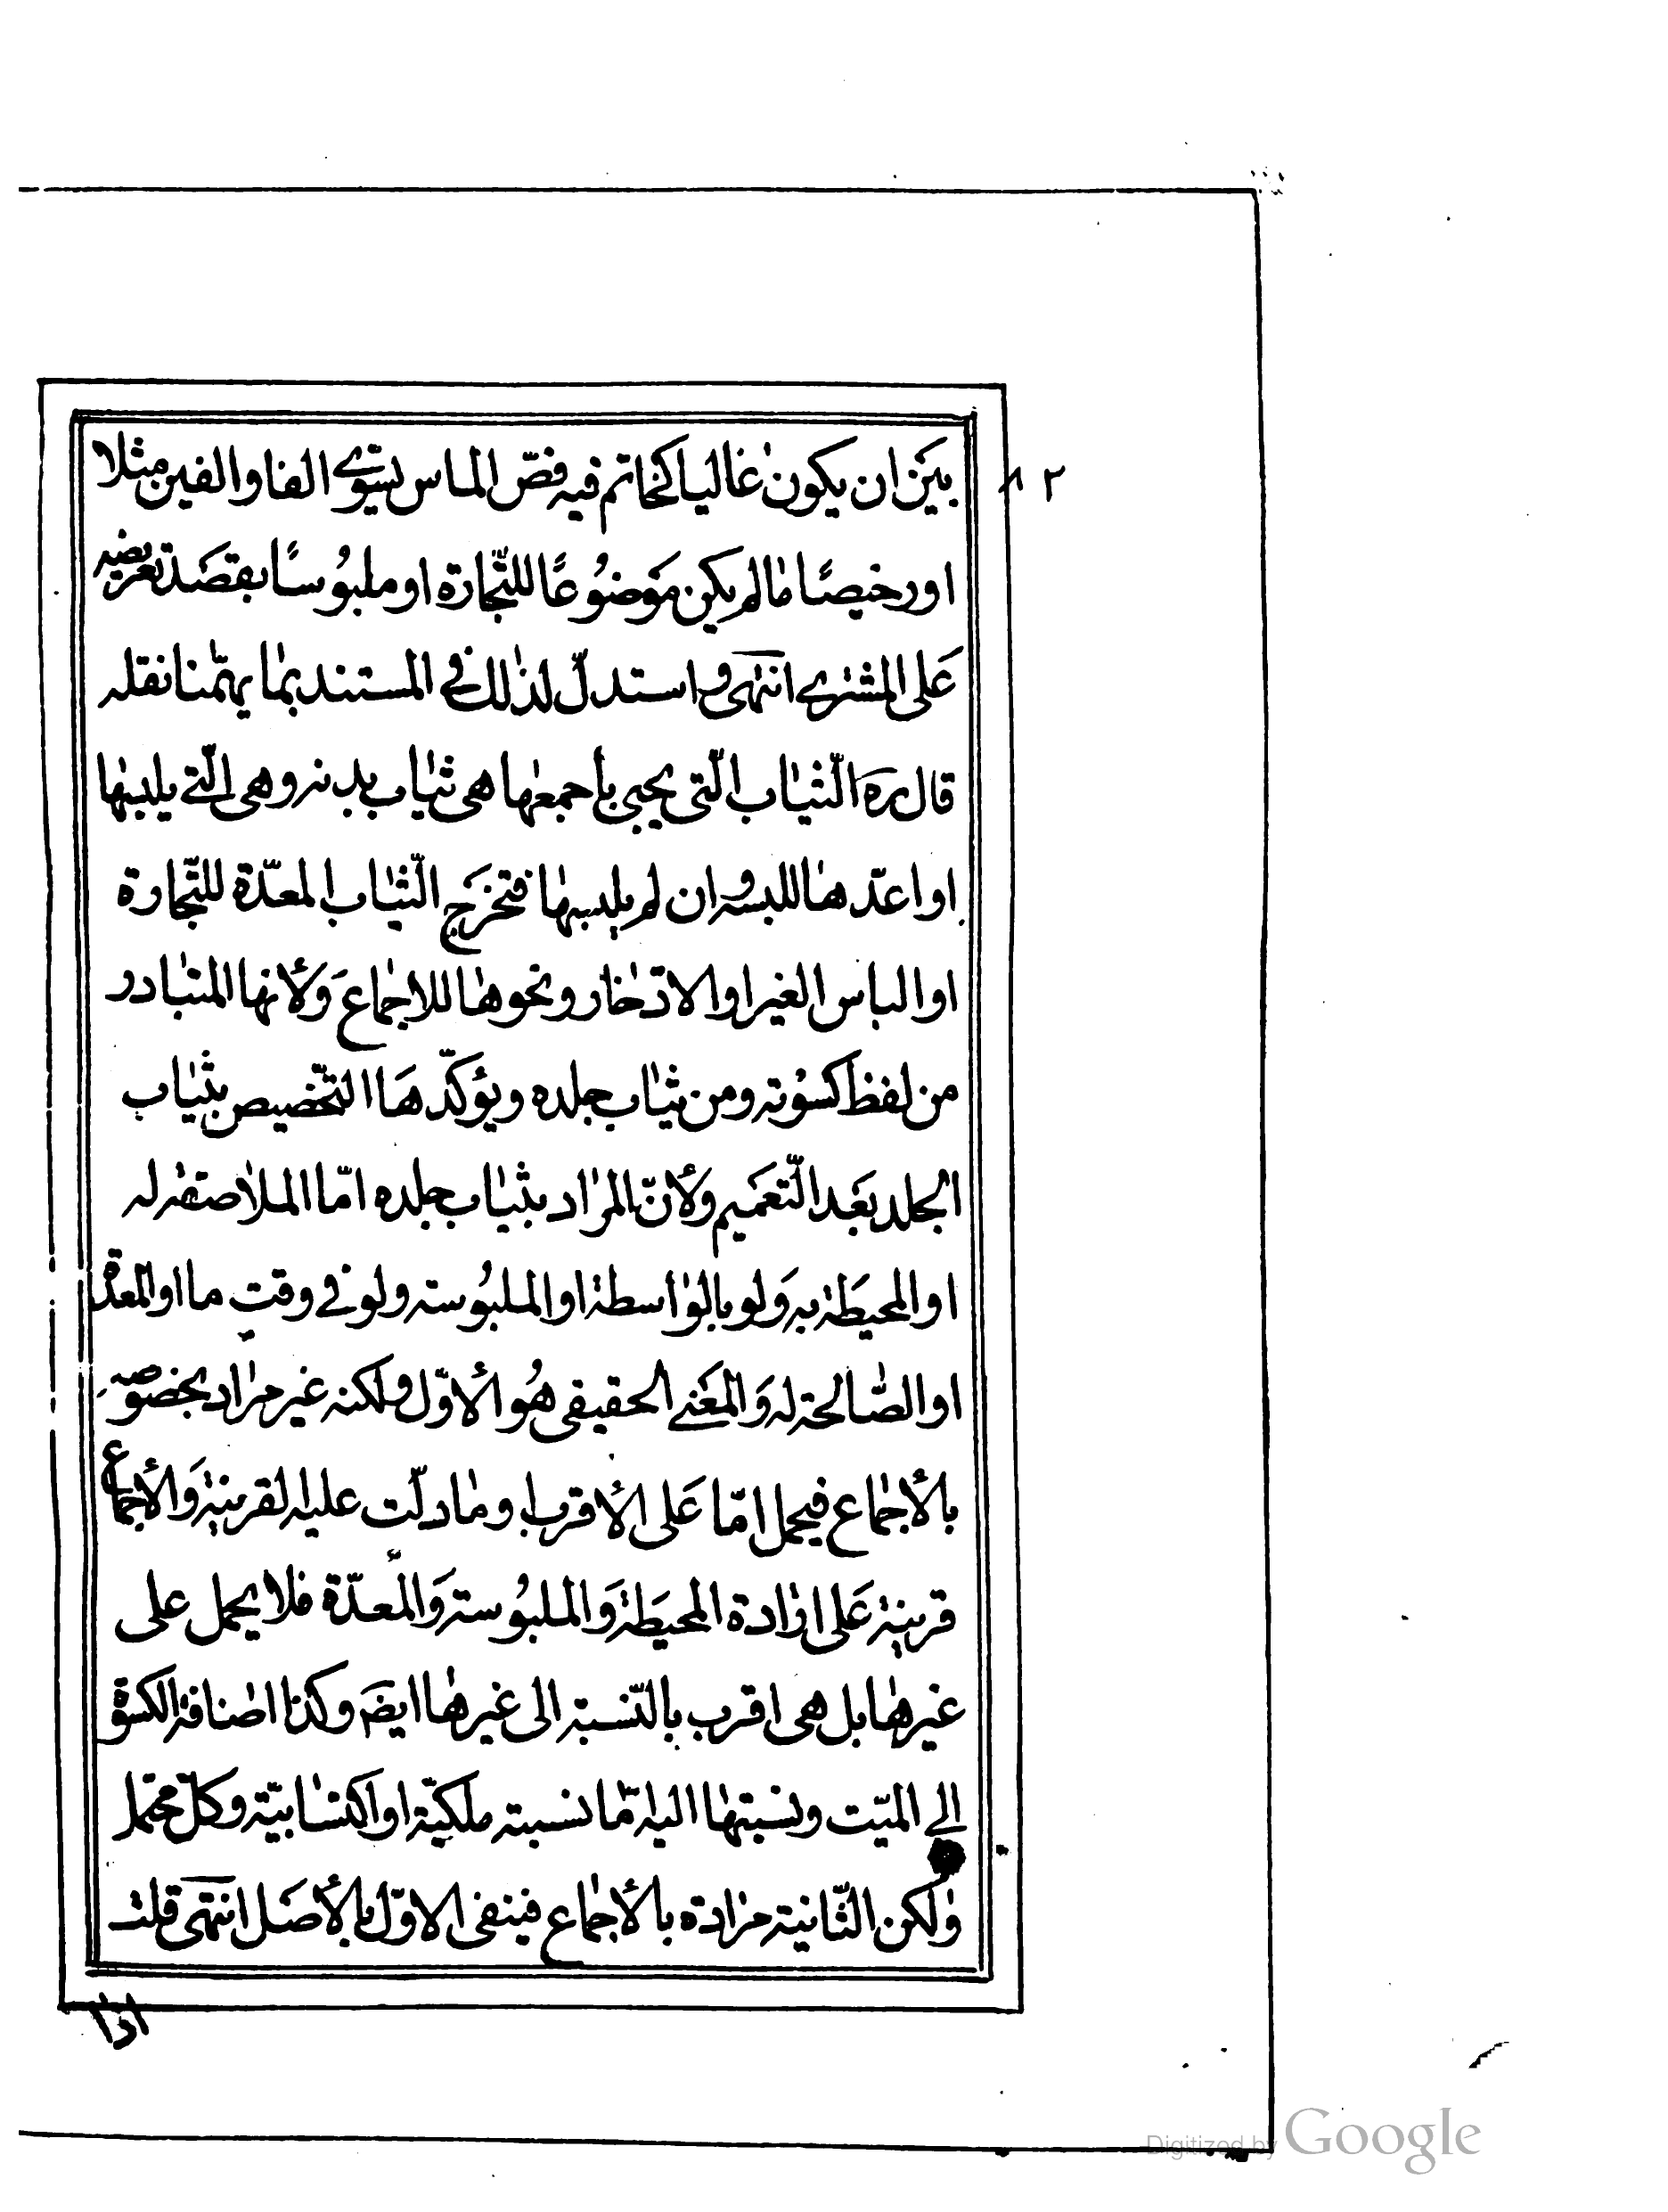 ٨٢
بين ان يكون غاليا كخاتم فيه فصّ الماس يسّوى الفا والفين مثلا
او رخيصًا مالم يكن موضوعًا للتّجارة او ملبوسًا بقصد تعريضه
على المشترى انتهى واستدلّ لذلك فى المستند بما يهمّنا نقله
قال ره الثّياب الّتى يحبى بأجمعها هى ثياب بدنه وهى الّتى يلبسها
او اعدّها للبسه وان لم يلبسها فتخرج الثّياب المعدّة للتّجارة
او الباس الغير او الادّخار ونحوها للاجماع ولأنها المتبادر
من لفظ كسوته ومن ثياب جلده ويؤكّدها التّخصيص بثياب
الجلد بعد التّعميم ولأنّ المراد بثياب جلده امّا الملاصقة له
او المحيطة به ولو بالواسطة او الملبوسة ولو فى وقت ما او المعدّة
او الصّالحة له والمعنى الحقيقى هو الأوّل ولكنه غير مراد بخصوصه
بالأجماع فيحمل امّا على الأقرب او ما دلّت عليه القرينة والأجماع
قرينة على ارادة المحيطة والملبوسة والمعدّة فلا يحمل على
غيرها بل هى اقرب بالنّسبة الى غيرها ايضَ وكذا اضافة الكسوة
الى الميّت ونسبتها اليه امّا نسبة ملكيّة او اكتسابيّة وكلّ محتمل
ولكن الثّانية مرادة بالأجماع فينفى الاوّل بالأصل انتهى قلت
اذا
Digitized by Google